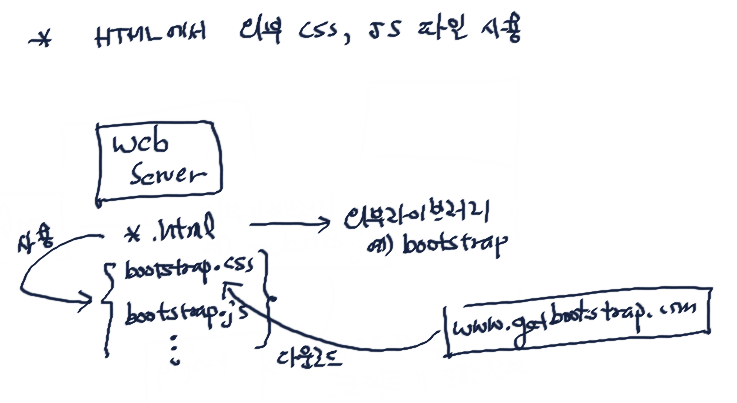 * HTML에서 외부 CSS, JS 파일 사용
Web
Server
사용
*.html
외부라이브러리
예) bootstrap
bootstrap.css
bootstrap.js
다운로드
www.getbootstrap.com